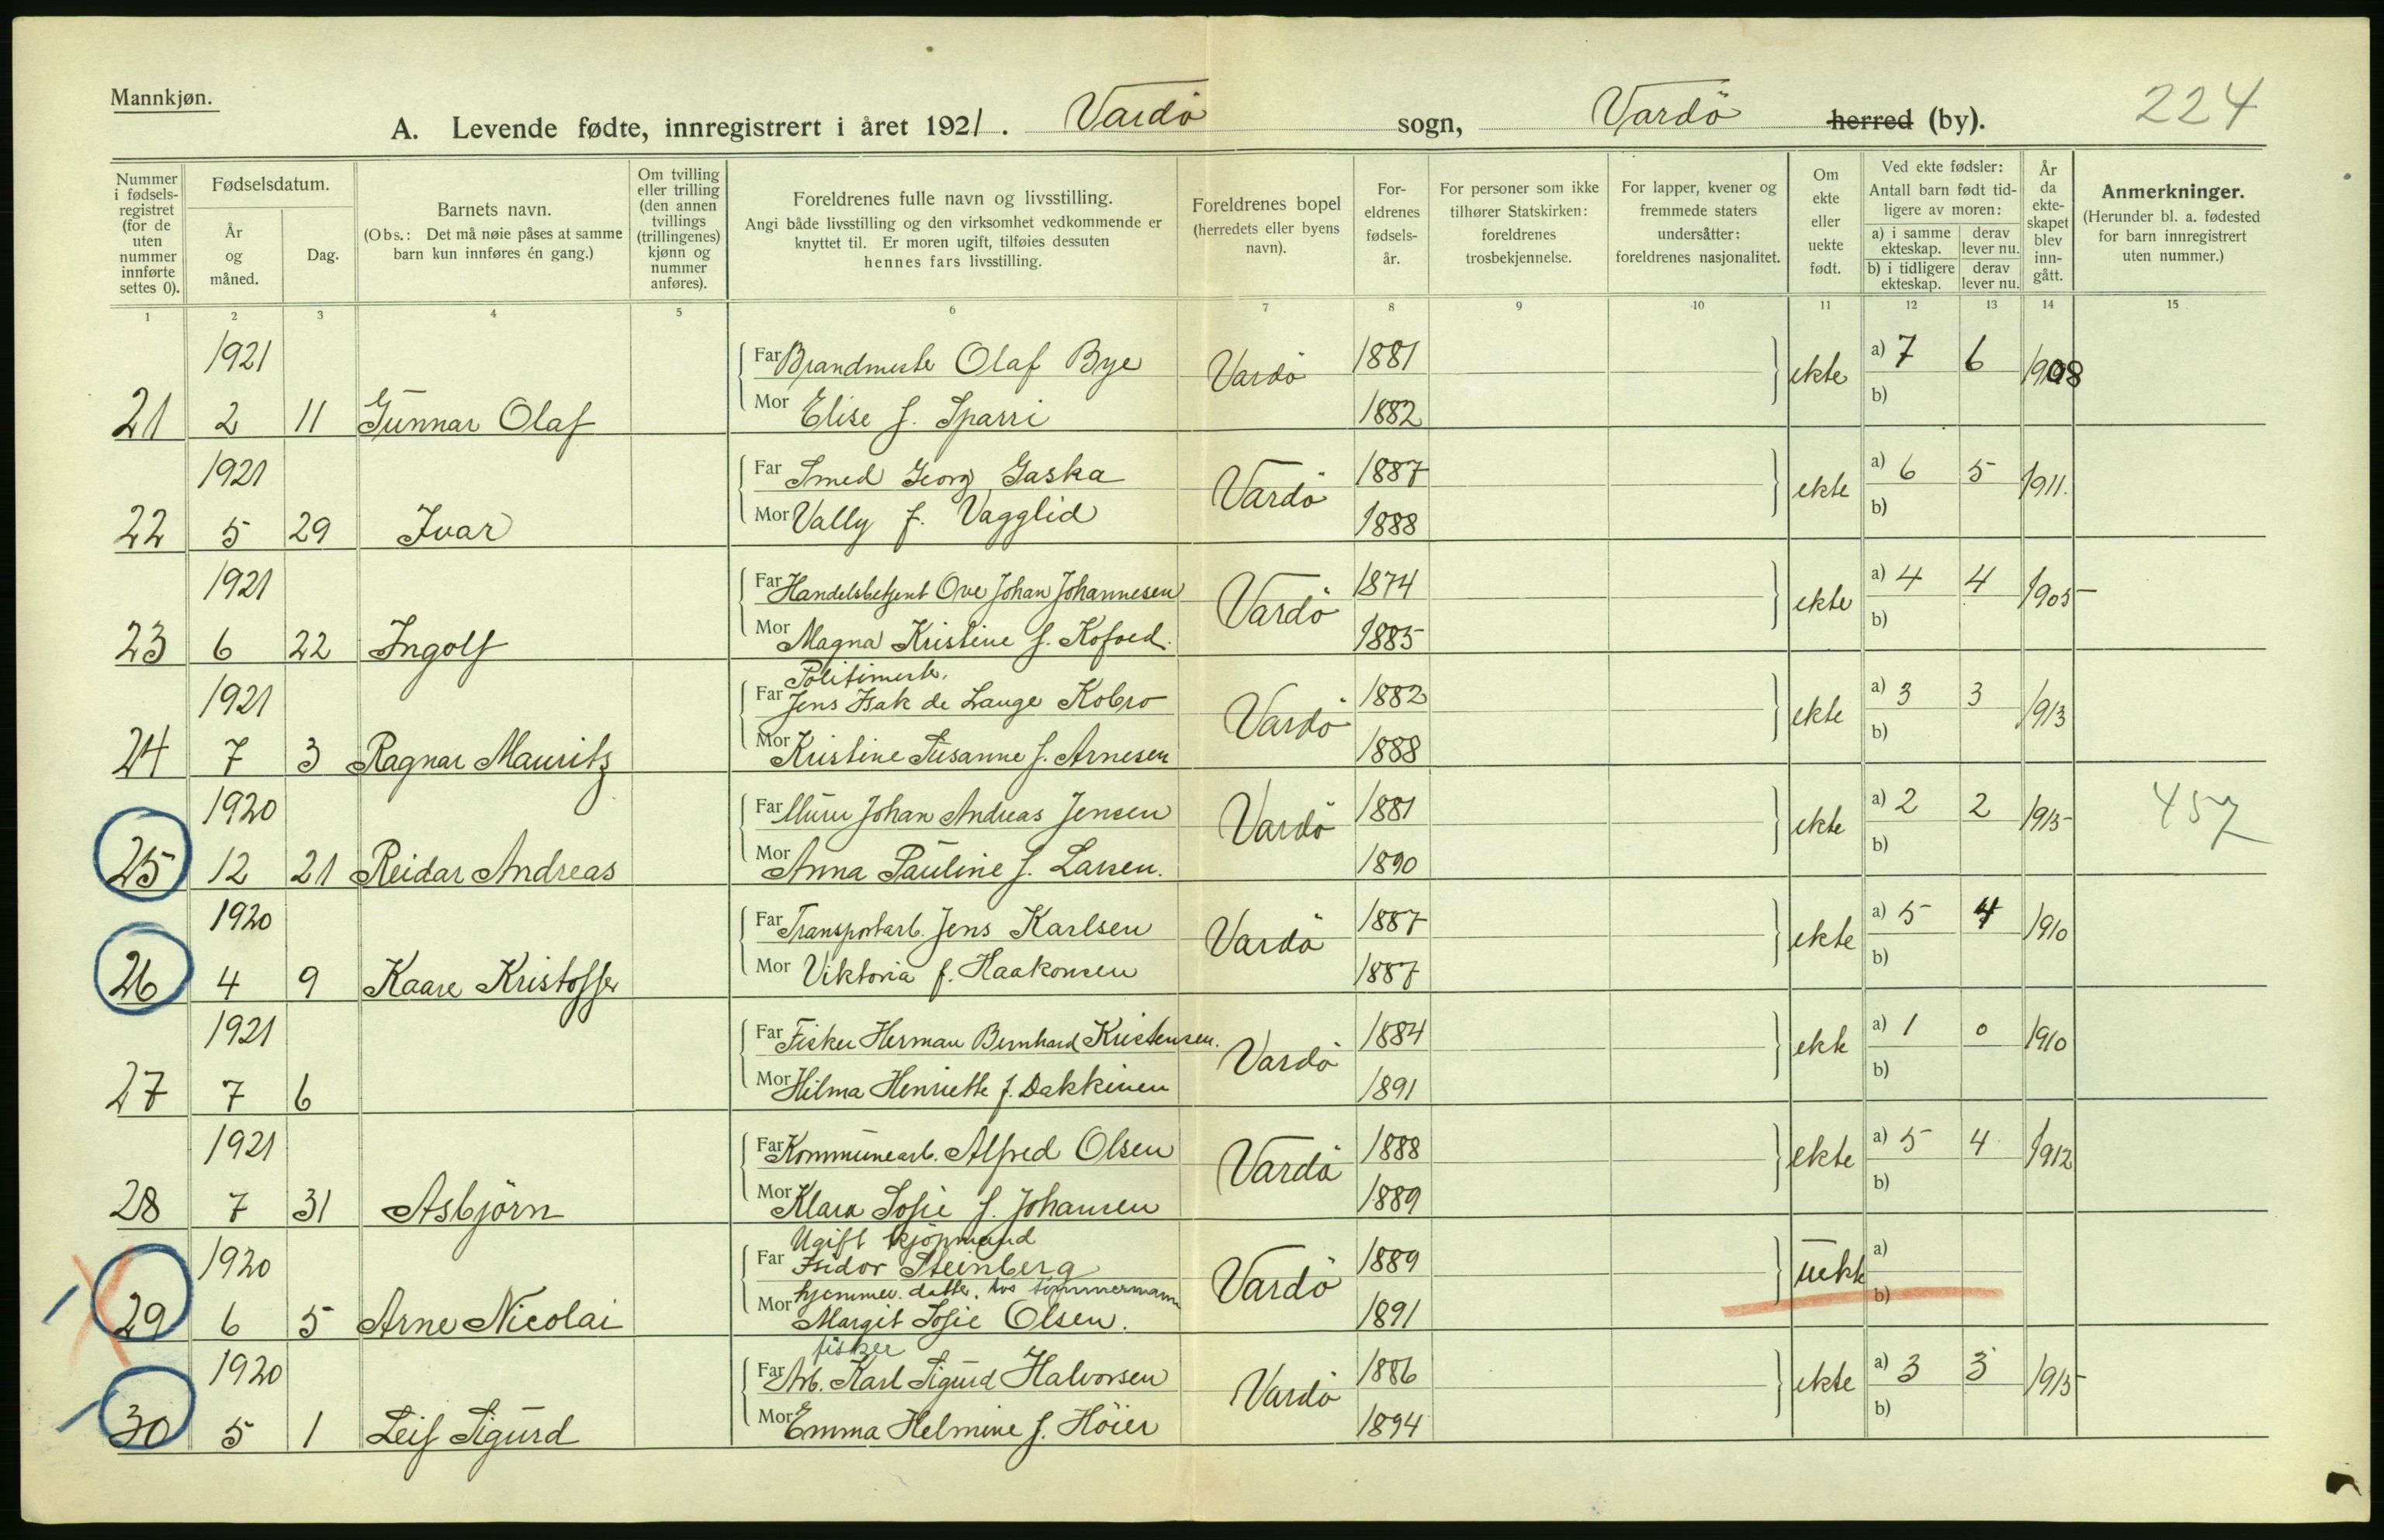 Mannkjøn.
224
A. Levende fødte, innregistrert i året 1921. Vardö sogn, Vardö herred (by).
Nummer i fødsels-registret (for de uten nummer innførte settes 0).
Fødselsdatum.
År og måned.
Dag.
Barnets navn.
(Obs.: Det må nøie påses at samme barn kun innføres én gang.)
Om tvilling eller trilling (den annen tvillings (trillingenes) kjønn og nummer anføres).
Foreldrenes fulle navn og livsstilling.
Angi både livsstilling og den virksomhet vedkommende er knyttet til. Er moren ugift, tilføies dessuten hennes fars livsstilling.
Foreldrenes bopel (herredets eller byens navn).
For-eldrenes fødsels-år.
For personer som ikke tilhører Statskirken: foreldrenes trosbekjennelse.
For lapper, kvener og fremmede staters undersåtter: foreldrenes nasjonalitet.
Om ekte eller uekte født.
Ved ekte fødsler:
Antall barn født tid-ligere av moren:
a) i samme ekteskap.
derav lever nu.
b) i tidligere ekteskap.
derav lever nu.
År da ekte-skapet blev inn-gått.
Anmerkninger.
(Herunder bl. a. fødested for barn innregistrert uten nummer.)
1 2 3 4 5 6 7 8 9 10 11 12 13 14 15
1921 Far Brandmester Olaf Bye Vardö 1881 ekte a) 7 6 1908
21 2 11 Gunnar Olaf Mor Elise f. Sparri 1882 b)
1921 Far Smed Georg Gaska Vardö 1887 ekte a) 6 5 1911.
22 5 29 Ivar Mor Vally f. Vagglid 1888 b)
1921 Far Handelsbetjent Ove Johan Johannesen Vardö 1874 ekte a) 4 4 1905
23 6 22 Ingolf Mor Magna Kristine f. Kofoed. 1885 b)
Politimester.
1921 Far Jens Isak de Lange Kobro Vardö 1882 ekte a) 3 3 1913
24 7 3 Ragnar Mauritz Mor Kristine Susanne f. Arnesen 1888 b)
1920 Far Murer Johan Andreas Jensen Vardö 1881 ekte a) 2 2 1915 457
25 12 21 Reidar Andreas Mor Anna Pauline f. Larsen. 1890 b)
1920 Far Transportarb. Jens Karlsen Vardö 1887 ekte a) 5 4 1910
26 4 9 Kaare Kristoffer Mor Viktoria f. Haakonsen 1887 b)
1921 Far Fisker Herman Bernhard Kristensen. Vardö 1884 ekte a) 1 0 1910
27 7 6 Mor Hilma Henriette f. Dakkinen 1891 b)
1921 Far Kommunearb. Alfred Olsen Vardö 1888 ekte a) 5 4 1912
28 7 31 Asbjörn Mor Klara Sofie f. Johansen 1889 b)
Ugift kjöpmand
1920 Far Isidor Steinberg Vardö 1889 uekte a)
hjemmev. datter. hos tömmermann
29 6 5 Arne Nicolai Mor Margit Sofie Olsen. 1891 b)
fisker
1920 Far Arb. Karl Sigurd Halvorsen Vardö 1886 ekte a) 3 3 1915
30 5 1 Leif Sigurd Mor Emma Helmine f. Höier 1894 b)